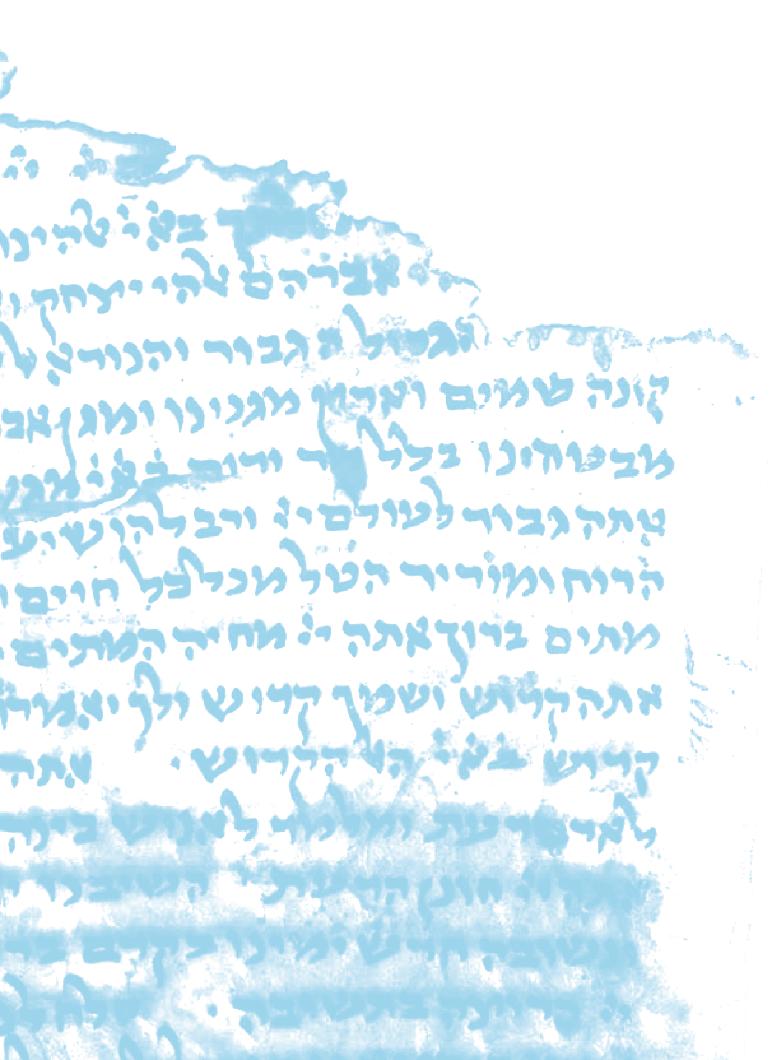 בא׳י׳ אלהינו
אברהם אלהי יצחק
הגדול הגבור והנורא אל
קונה שמים וארץ מגנינו ומגן אב
מבטוחינו בכל דור ודור בא׳י׳ מגן
אתה גבור לעולם י׳י ורב להושיע
הרוח ומוריד הטל מכלכל חיים
מתים ברוך אתה י׳י מחיה המתים
אתה קדוש ושמך קדוש ולך יאמרו
קדוש בא׳י׳ האל הקדוש אתה
לאדם דעת ומלמד לאנוש בינה
חונן הדעת השיבנו
ונשובה חדש ימינו כקדם
הרוצה בתשובה